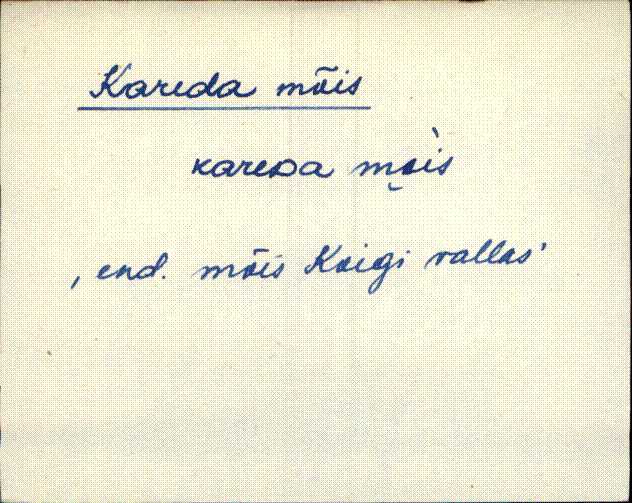 Kareda mõis
kareᴅa me̮ìs
‚ end. mõis Koigi vallas ’